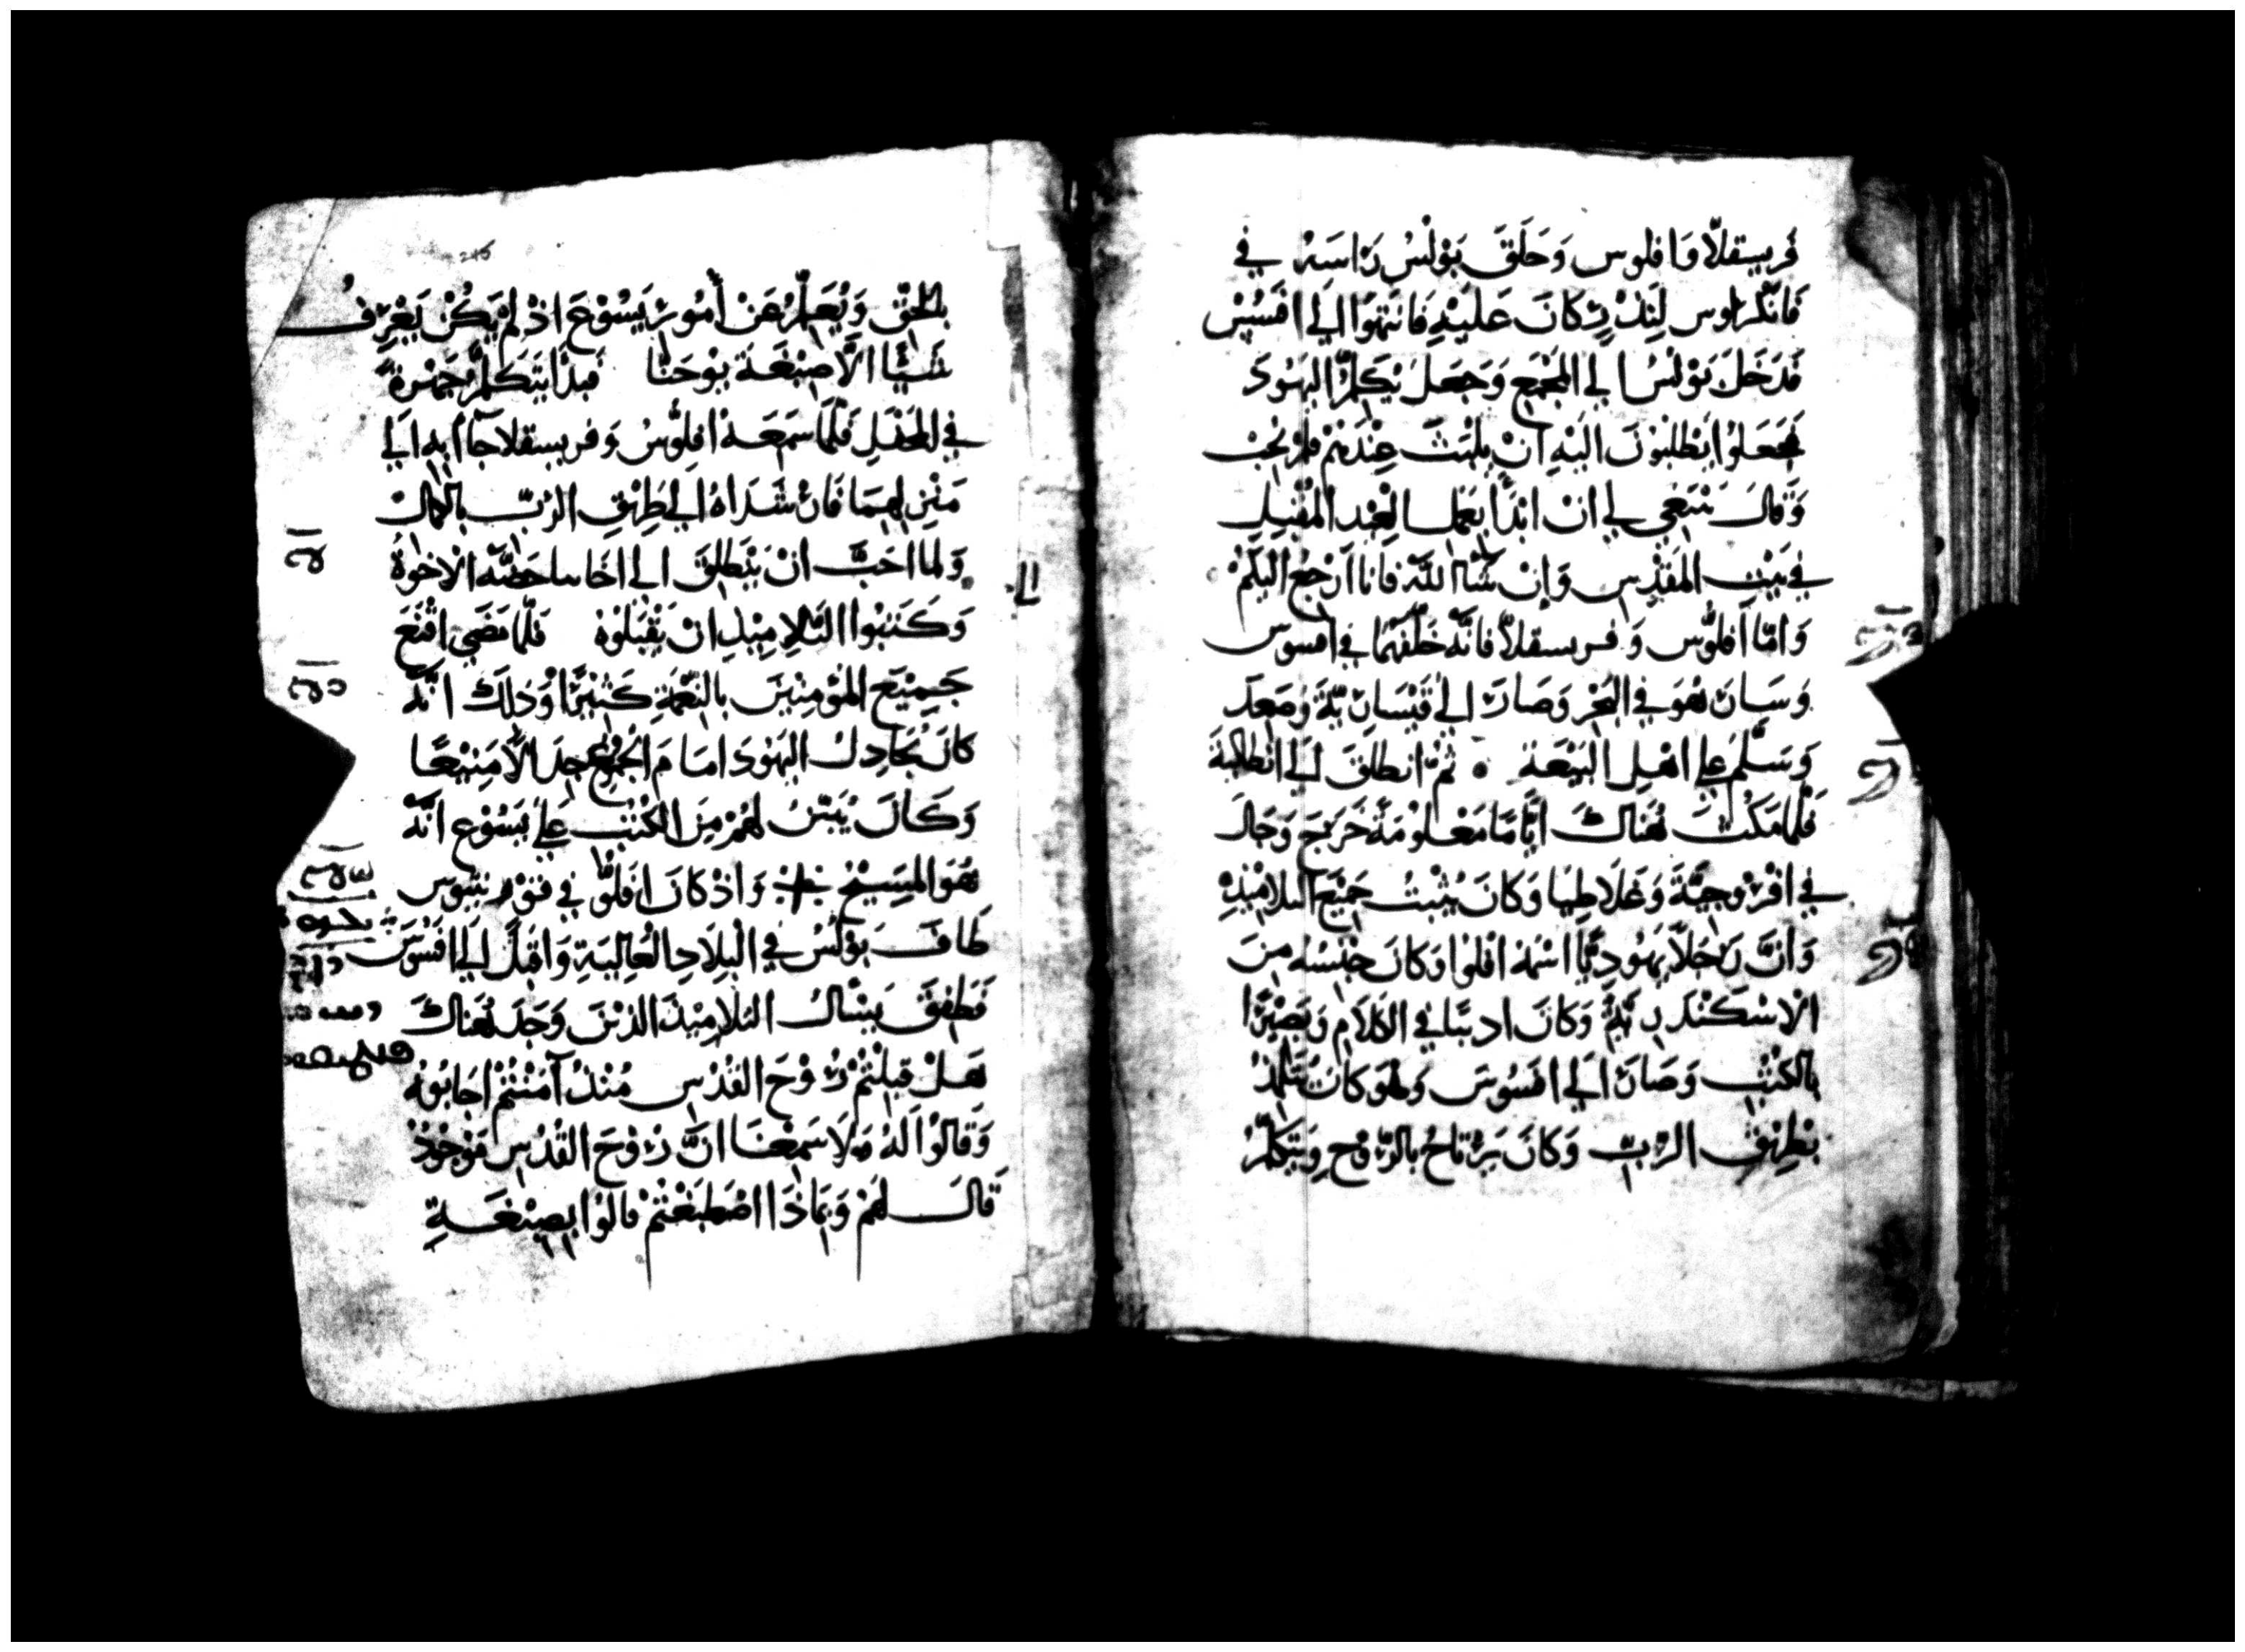 فريسقلّا وَافلوس وَحَلَقَ بَوْلسُ رَاسَهُ في
فَانكراوس لِنِذرٍ كَانَ عَلَيْهِ فَانتَهَوا اَلي افَسُسْ
فَدَخَلَ بَوْلسُ الي المَجْمَعِ وَجَعَلَ يُكلِّمُ اليَهُودَ
فَجَعَلوُا يَطلبُونَ الَيْهِ انْ يلبَثَ عِنْدَهُمْ فلمْ يُجبْ
وَقَالَ يَنْبَغي لي انْ ابْدَأ بعَمَل العِيْد المُقْبِلِ
في بَيْتِ المَقدِسِ وَاِنْ شَآ اللَّه فَانا اَرْجعُ اليكمْ
وَامّا اَفلوُّس وَفريسقلاّ فانَّه خَلّفهُمَا في افسوس
وَسَارَ هُوَ في البَحْر وَصَارَ اليٰ قَيْسَاريّةَ وَصَعِدَ
وَسَلّمَ عَلي اهْلِ البَيْعَة ۰ ثمْ انطلقَ اليٰ انطاكيةَ
فَلمَا مَكثَ هُنَاكَ ايَّامًا مَعْلوُمَةً خَرَجَ وَجَالَ
في افْرُوجيَّةَ وَغَلَاطِيَا وَكَانَ يُثبتُ جَمِيْعَ التلامِيْذِ
وَانَّ رَجُلاً يَهُودِيًّا اسْمُهُ افلوُا وَكانَ جِنْسُه مِنَ
الاسْكنْدَريّةِ وَكانَ اديبًا في الكَلَامِ وَبَصِيْرًا
بالكتُبِ وَصَارَ اَلي افسُوسَ وَهوَ كانَ تتلمذُ
بطريقِ الرَّبِّ وَكَانَ يَرْتاحُ بالرّوُحِ وَيتكلّمُ
بالحَقِّ وَيُعَلِّمُ عَنْ أُمُورِ يَسُوْعَ اذْ لمْ يَكُنْ يَعْرِفُ
شَيًْا الَّا صِبْغَةَ يوْحَنَّا فَبدأ يتكلّمُ جَهْرةً
في المَحْفلِ فَلّمَا سَمِعَهُ افلوُّسُ وَفريسقلا جاآ به اَلي
مَنْزِلِهمَا فَارْشَدَاهُ الي طَرِيْقِ الرّبِّ بالكمَال
وَلما احَبَّ انْ يَنْطَلِقَ الي اخَاىىا حَضَّه الاخوَةُ
وَكَتبُوا التلاِمِيْذِ انْ يَقْبَلوُهُ فَلّمَا مَضَي اقْنَعَ
جَمِيْعَ المُؤمِنِيْنَ بالنِّعْمَةِ كَثيْرًا وَذلِكَ انّهُ
كانَ يُجَادِلُ اليَهُودَ امَامَ الجُمُوْعِ جِدَالًا مَنِيْعًا
وَكَانَ يُبَيّنُ لهُمْ مِنَ الكتُبِ عَليٰ يَسُوْعَ انَّهُ
هُوَ المَسِيْحُ وَاذْ كانَ افَلوُّ في قوْرنثيوُس
طَافَ بوْلسُ في البِلَادِ العَاليَةِ وَاقبَلَ اَلي افسُوسَ
فَطفِقَ يَسْالُ التلَامِيْذَ الذيْنَ وَجَدَ هُنَاكَ
هَلْ قَبِلْتُمْ رُوْحَ القُدْسِ مُنْذُ آمَنتُمْ اجَابُوُهُ
وَقالوُا لَهُ وَلَا سَمِعْنَا انَّ رُوْحَ القُدْسِ مَوْجُوْدٌ
قالَ لهُمْ وَبمَاذا اصْطَبَغْتمْ قالوُا بصِبْغَةِ
245